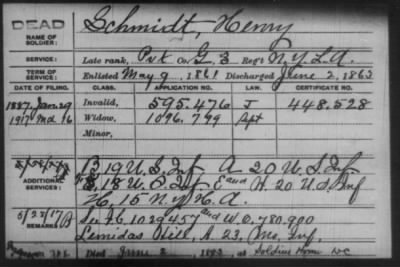 DEAD
NAME OF SOLDIER:
Schmidt, Henry
SERVICE:
Late rank, Pvt Co. G. 3 Reg't N.Y.L.A.
TERM OF SERVICE:
Enlisted May 9, 1861 Discharged June 2, 1863
DATE OF FILING. CLASS. APPLICATION NO. LAW. CERTIFICATE NO.
1887. Jan 29 Invalid, 595.476 J 448.528
1917 Mch 16 Widow, 1096.799
Minor,
ADDITIONAL SERVICES:
B 19 U.S. Inf A 20 U.S. Inf
18 U.S. Inf E and H. 20 U.S. Inf
H, 15 N.Y.H.A.
5/22/17
REMARKS
See C. 1029457 and W.O. 780.900
Leonidas Hill, A. 23, Mo. Inf.
Died June 2, at Soldiers Home DC